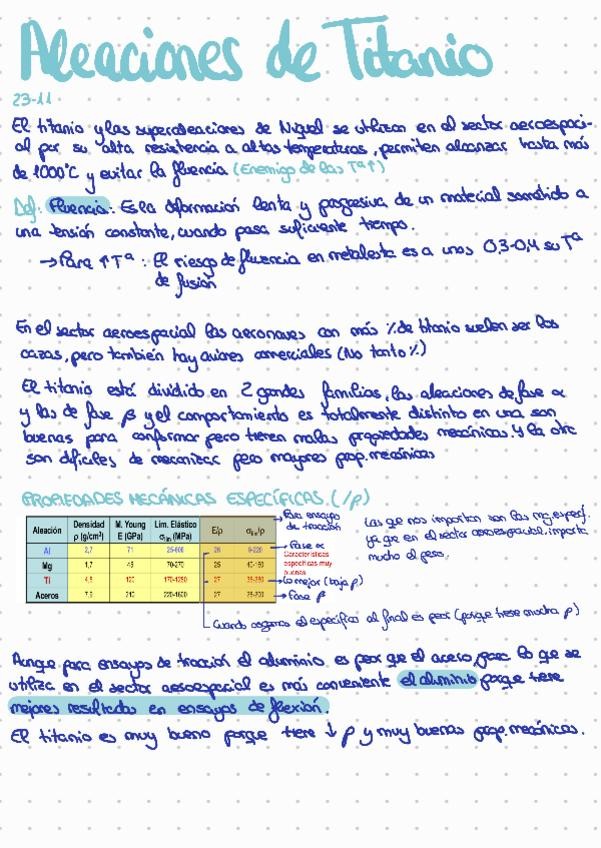 Aleaciones de Titanio
23-11
El titanio y las superaleaciones de Niquel se utilizan en el sector aeroespaci-
al por su alta resistencia a altas temperaturas, permiten alcanzar hasta más
de 1000°C y evitar la fluencia (Enemigo de las Tª↑)
Def: Fluencia: Es la deformación lenta y progresiva de un material sometido a
una tensión constante, cuando pasa suficiente tiempo.
→ Para ↑Tª: El riesgo de fluencia en metales ta es a unos 0,3-0,4 su Tª
de fusión
En el sector aeroespacial las aeronaves con más % de titanio suelen ser los
cazas, pero también hay aviones comerciales (No tanto %)
El titanio está dividido en 2 grandes familias, las aleaciones de fase α
y las de fase β y el comportamiento es totalmente distinto en una son
buenas para conformar pero tienen malas propiedades mecánicas. Y la otra
son dificiles de mecanizar pero mayores prop. mecánicas
PROPIEDADES MECÁNICAS ESPECÍFICAS. (/ρ)
Aleación Densidad ρ (g/cm³) M. Young E (GPa) Lim. Elástico σlim (MPa) E/ρ σlim/ρ
Al 2,7 71 25-600 26 9-220
Mg 1,7 45 70-270 26 40-160
Ti 4,5 120 170-1280 27 38-280
Aceros 7,9 210 220-1600 27 28-200
→ Para ensayo
de tracción
→ Fase α
Características
específicas muy
buenas
→ Lo mejor (baja ρ)
→ Fase β
Las que nos importan son las mg. específ.
ya que en el sector aeroespacial importa
mucho el peso.
Cuando cogemos el específico al final es peor (porque tiene mucha ρ)
Aunque para ensayos de tracción el aluminio es peor que el acero, para lo que se
utiliza en el sector aeroespacial es más conveniente el aluminio porque tiene
mejores resultados en ensayos de flexión.
El titanio es muy bueno porque tiene ↓ ρ y muy buenas prop. mecánicas.